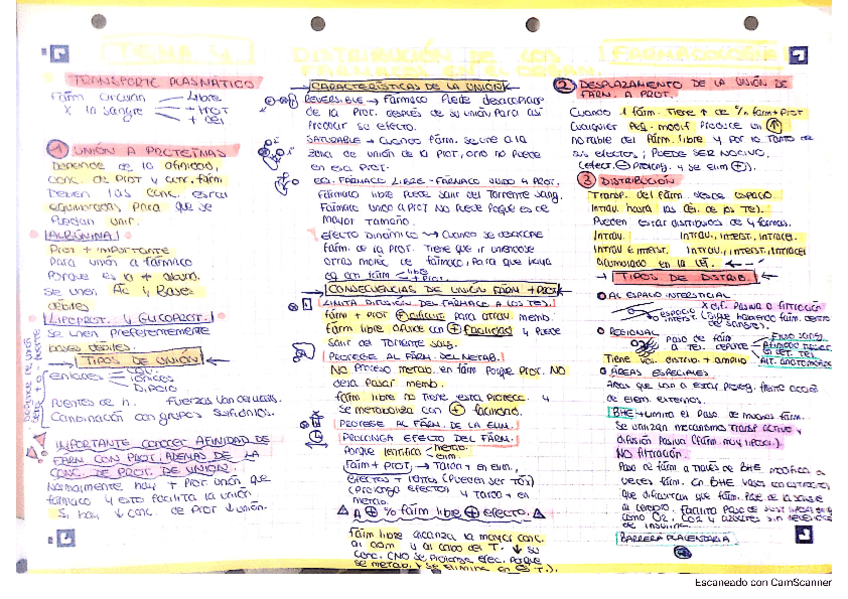 TEMA 4
DISTRIBUCIÓN DE LOS
FÁRMACOS EN EL ORGAN.
FARMACOLOGÍA
TRANSPORTE PLASMÁTICO
Fárm circulan Libre
x la sangre + PROT
+ cél
1 UNIÓN A PROTEÍNAS
Depende de la afinidad,
conc. de PROT y conc. farm
Deben las conc. estar
equilibradas, para que se
puedan unir.
ALBÚMINA
Prot + importante
para unión al fármaco
porque es la + abund.
Se unen Ác y Bases
débiles
LIPOPROT. y GLUCOPROT.
Se unen preferentemente
bases débiles.
TIPOS DE UNIÓN
enlaces cov.
iónicos
Dipolo
Puentes de H. Fuerzas Van der Waals.
Combinación con grupos sulfidrilos.
IMPORTANTE CONOCER AFINIDAD DE
FÁRM CON PROT. ADEMÁS DE LA
CONC. DE PROT. DE UNIÓN.
Normalmente hay + prot unión que
fármaco y esto facilita la unión
Si hay ↓ conc. de prot ↓ unión.
CARACTERÍSTICAS DE LA UNIÓN
REVERSIBLE → Fármaco puede desacoplar
de la prot. después de su unión para así
producir su efecto.
SATURABLE → Cuando fárm. se une a la
zona de unión de la PROT, otro no puede
en esa PROT.
EQ. FÁRMACO LIBRE - FÁRMACO UNIDO A PROT.
Fármaco libre puede salir del torrente sang.
Fármaco unido a prot no puede porque es de
mayor tamaño.
EFECTO DINÁMICO → Cuando se desacopla
fárm. de la prot. tiene que ir uniéndose
otras moléc. de fármaco, para que haya
eq con fárm libre
+ prot.
CONSECUENCIAS DE UNIÓN FÁRM + PROT
LIMITA DIFUSIÓN DEL FÁRMACO A LOS TEJ.
fárm + prot ⊕ difícil para atrav memb.
fárm libre difunde con ⊕ facilidad y puede
salir del torrente sang.
PROTEGE AL FÁRM. DEL METAB.
NO proceso metab. en fárm porque prot. NO
deja pasar memb.
fárm libre no tiene esta protecc. y
se metaboliza con ⊕ facilidad.
PROTEGE AL FÁRM. DE LA ELIM.
PROLONGA EFECTO DEL FÁRM.
porque lentifica metab.
elim.
Fárm + PROT. → Tarda + en elim.,
efectos + lentos (pueden ser tóx)
(prolonga efectos) y tarda + en
metab.
A ⊕ % fárm libre ⊕ efecto.
fárm libre alcanza la mayor conc.
al adm y al cabo del T. ↓ su
conc. (NO se prolonga efec. porque
se metab. y se elimina en ⊖ T.).
2 DESPLAZAMIENTO DE LA UNIÓN DE
FÁRM. A PROT.
Cuando 1 fárm. tiene ↑ de % fárm + prot
cualquier peq. modif produce un ↑
notable del fárm. libre y por lo tanto de
sus efectos; PUEDE SER NOCIVO.
(efect. ⊖ prolong. y se elim ⊕).
3 DISTRIBUCIÓN
Transp. del fárm. desde espacio
intrav. hasta las cél. de los tej.
Pueden estar distribuidos de 4 formas.
Intrav. Intrav., interst., intracel.
Intrav e interst. Intrav., interst., intracel
acumulado en la cél.
TIPOS DE DISTRIB.
AL ESPACIO INTERSTICIAL
x dif. pasiva o filtración
REGIONAL
Paso de fárm
a tej. depende
Flujo sang.
Afinidad
Alt. anatómicas
Tiene distrib. + amplio
ÁREAS ESPECIALES
Áreas que van a estar proteg. frente acceso
de elem. externos.
BHE → Limita el paso de muchos fárm.
Se utilizan mecanismo transp activo y
difusión pasiva (fárm muy liposol.)
NO filtración.
Paso de fárm a través de BHE modifica a
veces fárm. En BHE
que dificultan que fárm. pase de la sangre
al cerebro. Facilita paso de
como O2, CO2 y azúcares sin
de insulina.
BARRERA PLACENTARIA
Escaneado con CamScanner